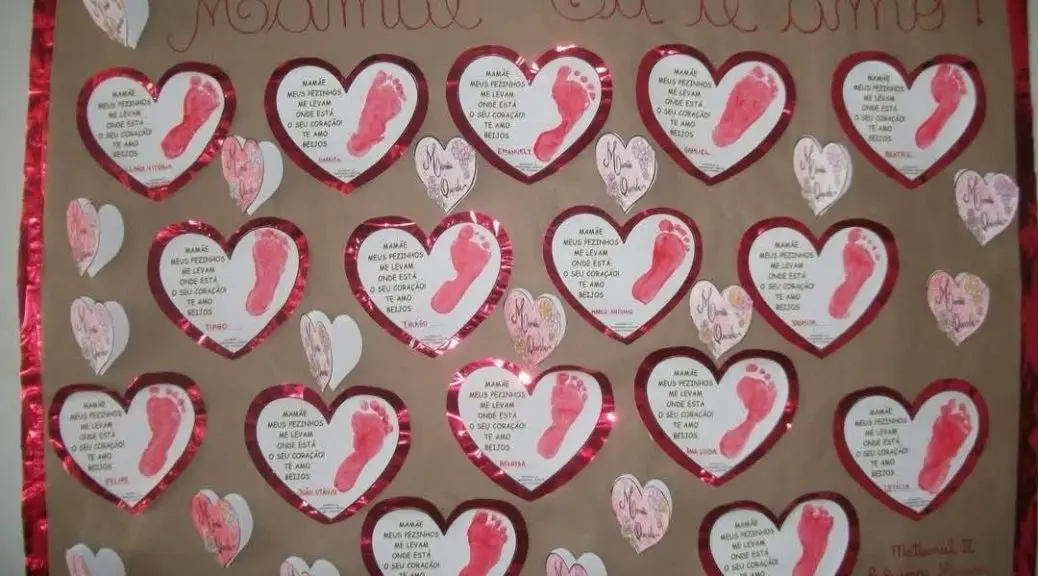 Mamãe Eu te amo!
MAMÃE
MEUS PEZINHOS
ME LEVAM
ONDE ESTÁ
O SEU CORAÇÃO!
TE AMO
BEIJOS
MAMÃE
MEUS PEZINHOS
ME LEVAM
ONDE ESTÁ
O SEU CORAÇÃO!
TE AMO
BEIJOS
MAMÃE
MEUS PEZINHOS
ME LEVAM
ONDE ESTÁ
O SEU CORAÇÃO!
TE AMO
BEIJOS
EMANUELY
MAMÃE
MEUS PEZINHOS
ME LEVAM
ONDE ESTÁ
O SEU CORAÇÃO!
TE AMO
BEIJOS
SAMUEL
MAMÃE
MEUS PEZINHOS
ME LEVAM
ONDE ESTÁ
O SEU CORAÇÃO!
TE AMO
BEIJOS
BEATRIZ
Mamãe
Querida
Mamãe
Querida
Mamãe
Querida
Mamãe
Querida
MAMÃE
MEUS PEZINHOS
ME LEVAM
ONDE ESTÁ
O SEU CORAÇÃO!
TE AMO
BEIJOS
TIAGO
MAMÃE
MEUS PEZINHOS
ME LEVAM
ONDE ESTÁ
O SEU CORAÇÃO!
TE AMO
BEIJOS
THIAGO
MAMÃE
MEUS PEZINHOS
ME LEVAM
ONDE ESTÁ
O SEU CORAÇÃO!
TE AMO
BEIJOS
MARCO ANTONIO
MAMÃE
MEUS PEZINHOS
ME LEVAM
ONDE ESTÁ
O SEU CORAÇÃO!
TE AMO
BEIJOS
Mamãe
Querida
Mamãe
Querida
Mamãe
Querida
MAMÃE
MEUS PEZINHOS
ME LEVAM
ONDE ESTÁ
O SEU CORAÇÃO!
TE AMO
BEIJOS
FELIPE
MAMÃE
MEUS PEZINHOS
ME LEVAM
ONDE ESTÁ
O SEU CORAÇÃO!
TE AMO
BEIJOS
JOÃO OTÁVIO
MAMÃE
MEUS PEZINHOS
ME LEVAM
ONDE ESTÁ
O SEU CORAÇÃO!
TE AMO
BEIJOS
MAMÃE
MEUS PEZINHOS
ME LEVAM
ONDE ESTÁ
O SEU CORAÇÃO!
TE AMO
BEIJOS
ANA LUISA
MAMÃE
MEUS PEZINHOS
ME LEVAM
ONDE ESTÁ
O SEU CORAÇÃO!
TE AMO
BEIJOS
LETÍCIA
Mamãe
Querida
Mamãe
Querida
MAMÃE
MEUS PEZINHOS
ME LEVAM
ONDE ESTÁ
O SEU CORAÇÃO!
TE AMO
MAMÃE
MEUS PEZINHOS
ME LEVAM
ONDE ESTÁ
O SEU CORAÇÃO!
TE AMO
Maternal II